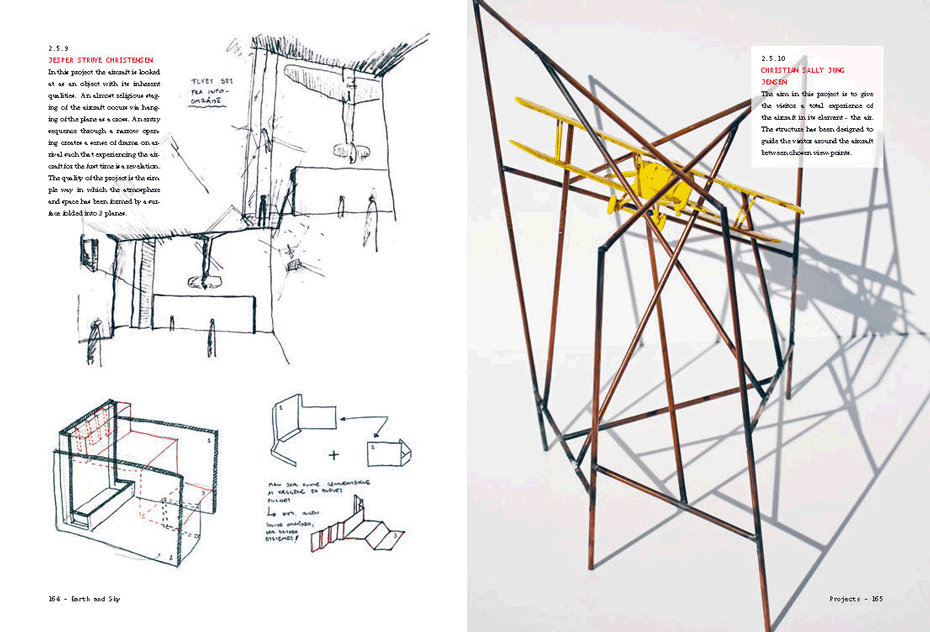 2.5.9
JESPER STRUVE CHRISTENSEN
In this project the aircraft is looked
at as an object with its inherent
qualities. An almost religious stag-
ing of the aircraft occurs via hang-
ing of the plane as a cross. An entry
sequence through a narrow open-
ing creates a sense of drama on ar-
rival such that experiencing the air-
craft for the first time is a revelation.
The quality of the project is the sim-
ple way in which the atmosphere
and space has been formed by a sur-
face folded into 3 planes.
FLYET SET
FRA INFO-
OMRÅDE
1
2
3
1
2
+
3
164 - Earth and Sky
2.5.10
CHRISTIAN SALLY JUNG
JENSEN
The aim in this project is to give
the visitor a total experience of
the aircraft in its element - the air.
The structure has been designed to
guide the visitor around the aircraft
between chosen view-points.
Projects - 165